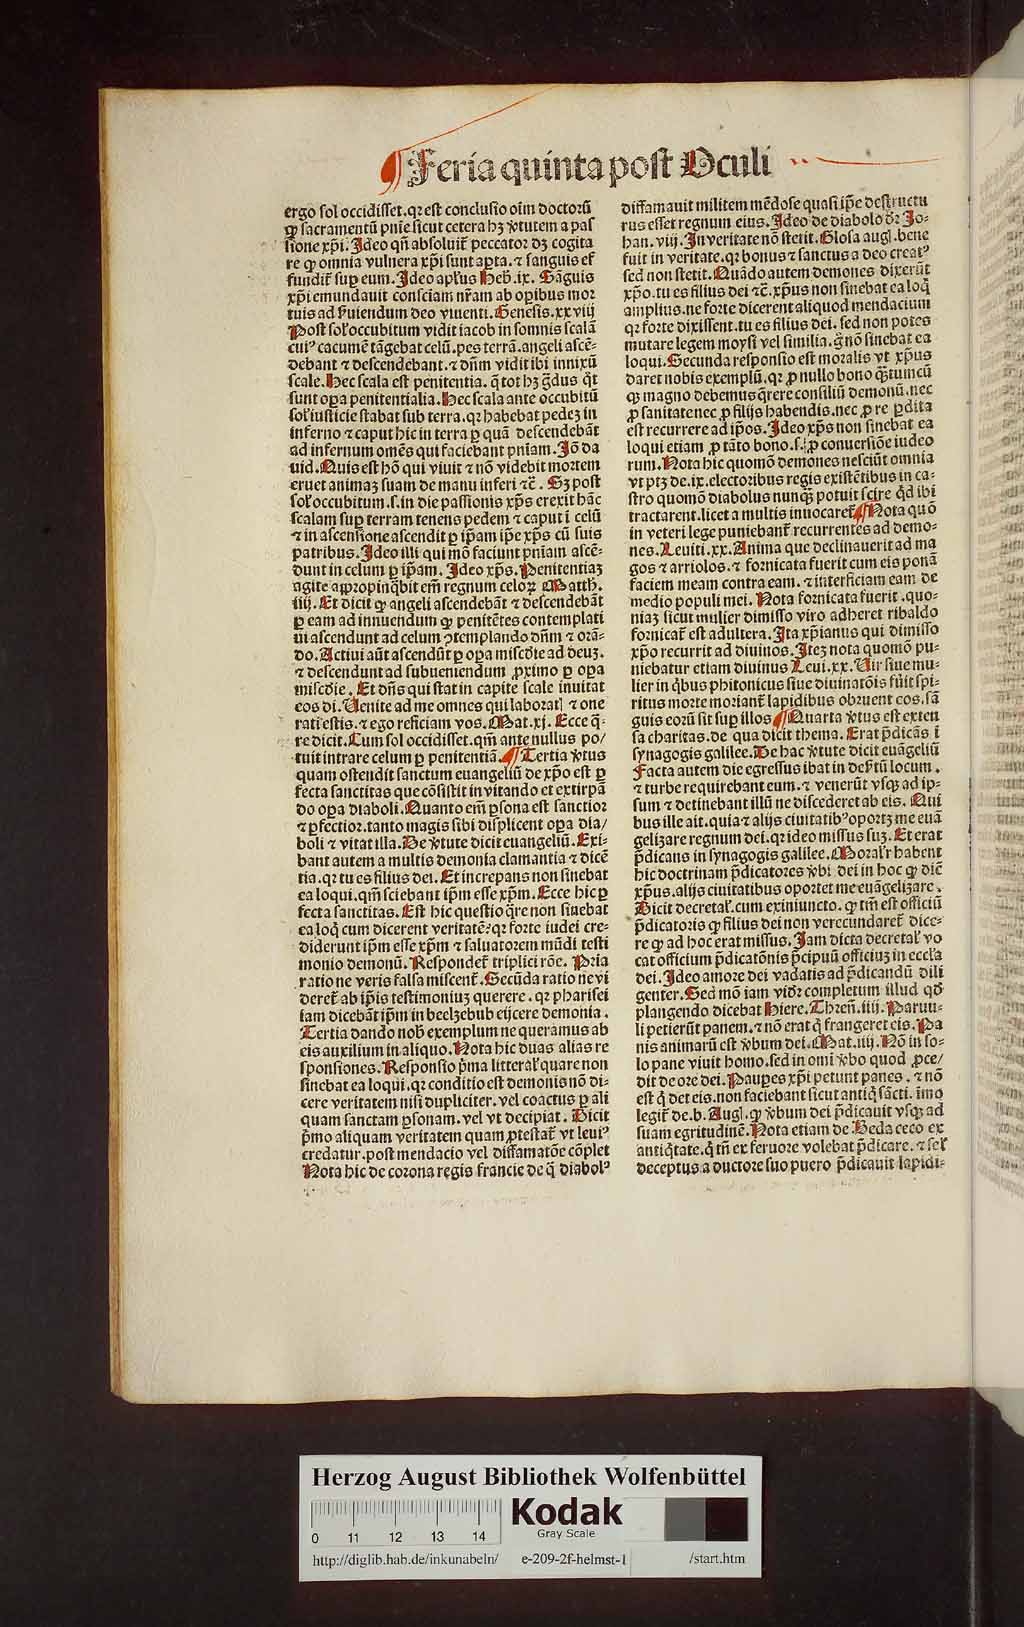 ¶ Feria quinta post Oculi
ergo sol occidisset. qꝛ est conclusio oīm doctorū
ꝙ sacramentū pnīe sicut cetera hꝫ ꝟtutem a pas
sione xp̄i. Ideo qn̄ absoluit᷑ peccator dꝫ cogita
re ꝙ omnia vulnera xp̄i sunt apta. ⁊ sanguis ef
fundit᷑ suꝑ eum. Ideo apl̄us Heb̄. ix. Sāguis
xp̄i emundauit consciam nr̄am ab oꝑibus mor
tuis ad ẜuiendum deo viuenti. Genesis. xxviij
Post sol̓ occubitum vidit iacob in somnis scalā
cuiꝰ cacumē tāgebat celū. pes terrā. angeli ascē-
debant ⁊ descendebant. ⁊ dn̄m vidit ibi innixū
scale. Hec scala est penitentia. q̄ tot hꝫ g̃dus q̄t
sunt oꝑa penitentialia. Hec scala ante occubitū
sol̓ iusticie stabat sub terra. qꝛ habebat pedeꝫ in
inferno ⁊ caput hic in terra ꝑ quā descendebāt
ad infernum omēs qui faciebant pn̄iam. Iō da
uid. Quis est hō qui viuit ⁊ nō videbit mortem
eruet animaꝫ suam de manu inferi ⁊c̄. Sꝫ post
sol̓ occubitum. s. in die passionis xp̄s erexit hāc
scalam suꝑ terram tenens pedem ⁊ caput ī celū
⁊ in ascensione ascendit ꝑ ip̄am ip̄e xp̄s cū suis
patribus. Ideo illi qui mō faciunt pn̄iam ascē-
dunt in celum ꝑ ip̄am. Ideo xp̄s. Penitentiaꝫ
agite appropinq̄bit em̄ regnum celoꝝ Matth.
iiij. Et dicit ꝙ angeli ascendebāt ⁊ descendebāt
ꝑ eam ad innuendum ꝙ penitētes contemplati
ui ascendunt ad celum ↄtemplando dn̄m ⁊ orā-
do. Actiui aūt ascendūt ꝑ oꝑa misc̄die ad deuꝫ.
⁊ descendunt ad subueniendum ꝓximo ꝑ oꝑa
misc̄die. Et dn̄s qui stat in capite scale inuitat
eos di. Uenite ad me omnes qui laborat] ⁊ one
rati estis. ⁊ ego reficiam vos. Mat. xj. Ecce q̄-
re dicit. Cum sol occidisset. qm̄ ante nullus po/
tuit intrare celum ꝑ penitentiā. ¶ Tertia ꝟtus
quam ostendit sanctum euangeliū de xp̄o est ꝑ
fecta sanctitas que cōsistit in vitando et extirpā
do oꝑa diaboli. Quanto em̄ ꝑsona est sanctior
⁊ ꝑfectior. tanto magis sibi displicent oꝑa dia/
boli ⁊ vitat illa. De ꝟtute dicit euangeliū. Exi-
bant autem a multis demonia clamantia ⁊ dicē
tia. qꝛ tu es filius dei. Et increpans non sinebat
ea loqui. qm̄ sciebant ip̄m esse xp̄m. Ecce hic ꝑ
fecta sanctitas. Est hic questio q̄re non sinebat
ea loq̄ cum dicerent veritatē: qꝛ forte iudei cre-
diderunt ip̄m esse xp̄m ⁊ saluatorem mūdi testi
monio demonū. Respondet᷑ triplici rōe. Pria
ratio ne veris falsa miscent᷑. Secūda ratio ne vi
deret᷑ ab ip̄is testimoniuꝫ querere. qꝛ pharisei
iam dicebāt ip̄m in beelzebub eijcere demonia.
Tertia dando nob̄ exemplum ne queramus ab
eis auxilium in aliquo. Nota hic duas alias re
sponsiones. Responsio p̄ma litteral̓ quare non
sinebat ea loqui. qꝛ conditio est demonis nō di-
cere veritatem nisi dupliciter. vel coactus ꝑ ali
quam sanctam ꝑsonam. vel vt decipiat. Dicit
p̄mo aliquam veritatem quam ꝓtestat᷑ vt leuiꝰ
credatur. post mendacio vel diffamatōe cōplet
Nota hic de corona regis francie de q̄ diabolꝰ
diffamauit militem mēdose quasi ip̄e destructu
rus esset regnum eius. Ideo de diabolo dr̄ Jo-
han. viij. In veritate nō stetit. Glosa augl. bene
fuit in veritate. qꝛ bonus ⁊ sanctus a deo creatꝰ
sed non stetit. Quādo autem demones dixerūt
xp̄o. tu es filius dei ⁊c̄. xp̄us non sinebat ea loq̄
amplius. ne forte dicerent aliquod mendacium
qꝛ forte dixissent. tu es filius dei. sed non potes
mutare legem moysi vel similia. g̊ nō sinebat ea
loqui. Secunda responsio est moralis vt xp̄us
daret nobis exemplū. qꝛ ꝓ nullo bono q̄ꝫtumcū
qꝫ magno debemus q̄rere consiliū demonū. nec
ꝓ sanitate nec ꝓ filijs habendis. nec ꝓ re ꝑdita
est recurrere ad ip̄os. Ideo xp̄s non sinebat ea
loqui etiam ꝓ tāto bono. s. ꝓ conuersiōe iudeo
rum. Nota hic quomō demones nesciūt omnia
vt ptꝫ de. ix. electoribus regis existētibus in ca-
stro quomō diabolus nunqꝫ potuit scire q̄d ibi
tractarent. licet a multis inuocaret᷑ ¶ Nota quō
in veteri lege puniebant᷑ recurrentes ad demo-
nes. Leuiti. xx. Anima que declinauerit ad ma
gos ⁊ arriolos. ⁊ fornicata fuerit cum eis ponā
faciem meam contra eam. ⁊ interficiam eam de
medio populi mei. Nota fornicata fuerit. quo-
niaꝫ sicut mulier dimisso viro adheret ribaldo
fornicat᷑ est adultera. Ita xp̄ianus qui dimisso
xp̄o recurrit ad diuinos. Iteꝫ nota quomō pu-
niebatur etiam diuinus Leui. xx. Uir siue mu-
lier in q̄bus phitonicus siue diuinatōis fu̓it spi-
ritus morte moriant᷑ lapidibus obruent eos. sā
guis eorū sit suꝑ illos ¶ Quarta ꝟtus est exten
sa charitas. de qua dicit thema. Erat p̄dicās ī
synagogis galilee. De hac ꝟtute dicit euāgeliū
Facta autem die egressus ibat in deẜtū locum.
⁊ turbe requirebant eum. ⁊ venerūt vsqꝫ ad ip-
sum ⁊ detinebant illū ne discederet ab eis. Qui
bus ille ait. quia ⁊ alijs ciuitatibꝰ oportꝫ me euā
gelizare regnum dei. qꝛ ideo missus suꝫ. Et erat
p̄dicans in synagogis galilee. Moral̓r habent
hic doctrinam p̄dicatores ꝟbi dei in hoc ꝙ dic̄
xp̄us. alijs ciuitatibus oportet me euāgelizare.
Dicit decretal̓. cum ex iniuncto. ꝙ tm̄ est officiū
p̄dicatoris ꝙ filius dei non verecundaret᷑ dice-
re ꝙ ad hoc erat missus. Iam dicta decretal̓ vo
cat officium p̄dicatōnis p̄cipuū officiuꝫ in eccl̓a
dei. Ideo amore dei vadatis ad p̄dicandū dili
genter. Sed mō iam vidr̄ completum illud qd̄
plangendo dicebat Hiere. Thren̄. iiij. Paruu-
li petierūt panem. ⁊ nō erat q̄ frangeret eis. Pa
nis animarū est ꝟbum dei. Mat. iiij. Nō in so-
lo pane viuit homo. sed in omī ꝟbo quod ꝓce/
dit de ore dei. Pauꝑes xp̄i petunt panes. ⁊ nō
est q̄ det eis. non faciebant sicut antiq̄ sācti. īmo
legit᷑ de. b. Augl. ꝙ ꝟbum dei p̄dicauit vsqꝫ ad
suam egritudinē. Nota etiam de Beda ceco ex
antiq̄tate. q̄ tn̄ ex feruore volebat p̄dicare. ⁊ sel̓
deceptus a ductore suo puero p̄dicauit lapidi-
Herzog August Bibliothek Wolfenbüttel
Kodak
Gray Scale
0 11 12 13 14
http://diglib.hab.de/inkunabeln/ e-209-2f-helmst-1 /start.htm